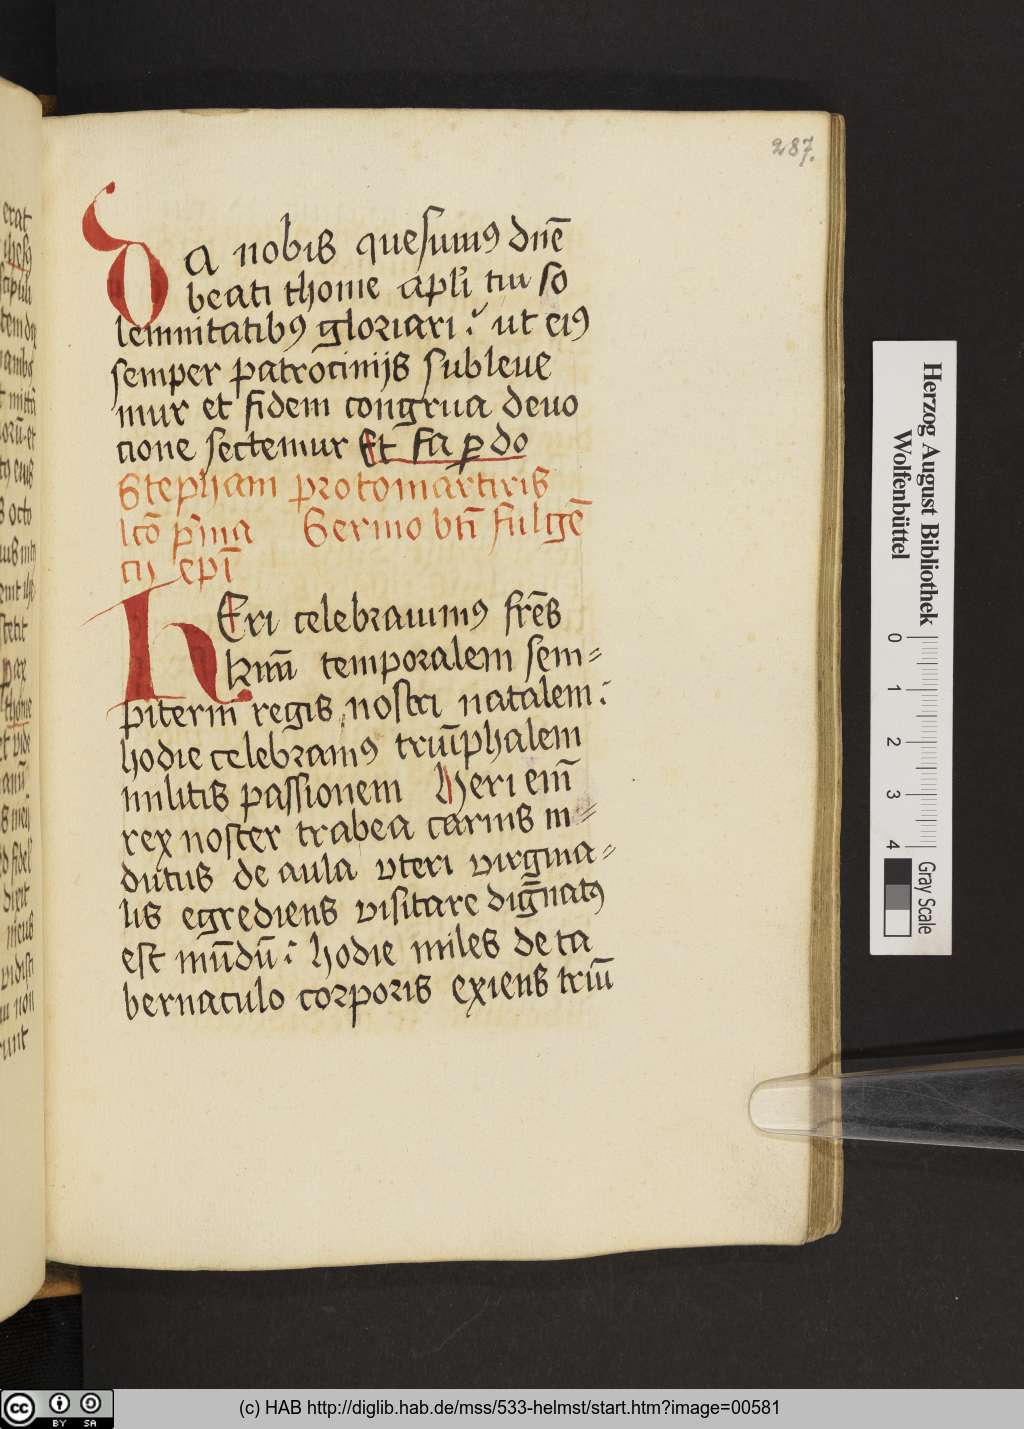 287.
Da nobis quesumus dne̅
beati thome apl̅i tui so
lemnitatibꝰ gloriari : ut eiꝰ
semper patrocinijs subleue
mur et fidem congrua deuo
cione sectemur Et fa p do
Stephani protomartiris
lco̅ p̅ma Sermo bt̅i fulge̅
cij epi̅
HEri celebrauimꝰ fre̅s
k̅mi̅ temporalem sem=
piterni regis nostri natalem :
hodie celebramꝰ triu̅phalem
militis passionem Heri eni̅
rex noster trabea carnis in=
dutus de aula vteri virgina=
lis egrediens visitare dig̅natꝰ
est mu̅du̅ : hodie miles de ta
bernaculo corporis exiens triu̅
Herzog August Bibliothek
Wolfenbüttel
0 1 2 3 4
Gray Scale
cc BY SA
(c) HAB http://diglib.hab.de/mss/533-helmst/start.htm?image=00581